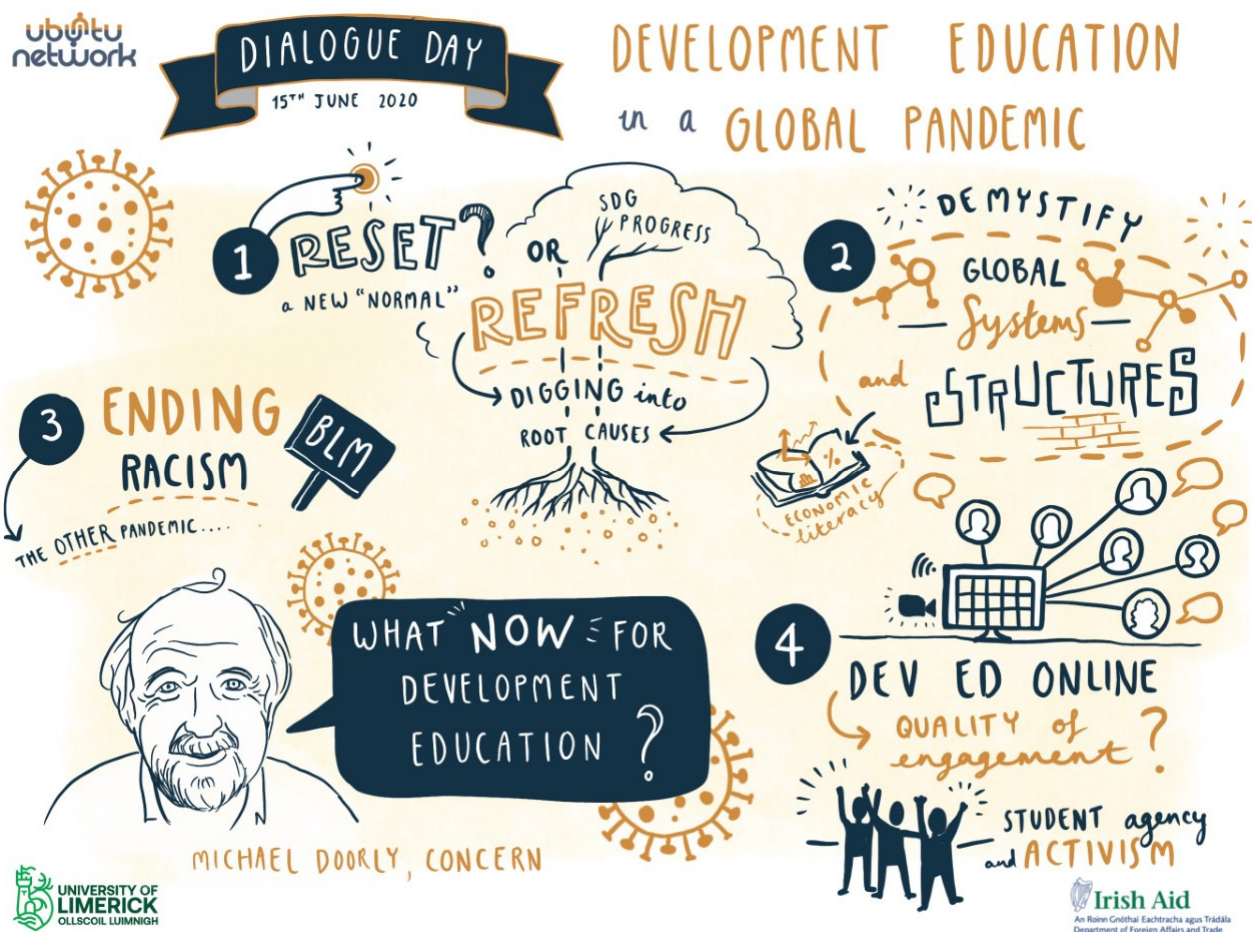 ubuntu
network
DIALOGUE DAY
15TH JUNE 2020
DEVELOPMENT EDUCATION
in a GLOBAL PANDEMIC
1
RESET?
a NEW "NORMAL"
OR
REFRESH
SDG
PROGRESS
DIGGING into
ROOT CAUSES
2
DEMYSTIFY
GLOBAL
Systems
and
STRUCTURES
ECONOMIC
literacy
%
3
ENDING
RACISM
BLM
THE OTHER PANDEMIC....
WHAT NOW FOR
DEVELOPMENT
EDUCATION ?
MICHAEL DOORLY, CONCERN
4
DEV ED ONLINE
QUALITY of
engagement?
STUDENT agency
and ACTIVISM
UNIVERSITY OF
LIMERICK
OLLSCOIL LUIMNIGH
Irish Aid
An Roinn Gnóthaí Eachtracha agus Trádála
Department of Foreign Affairs and Trade